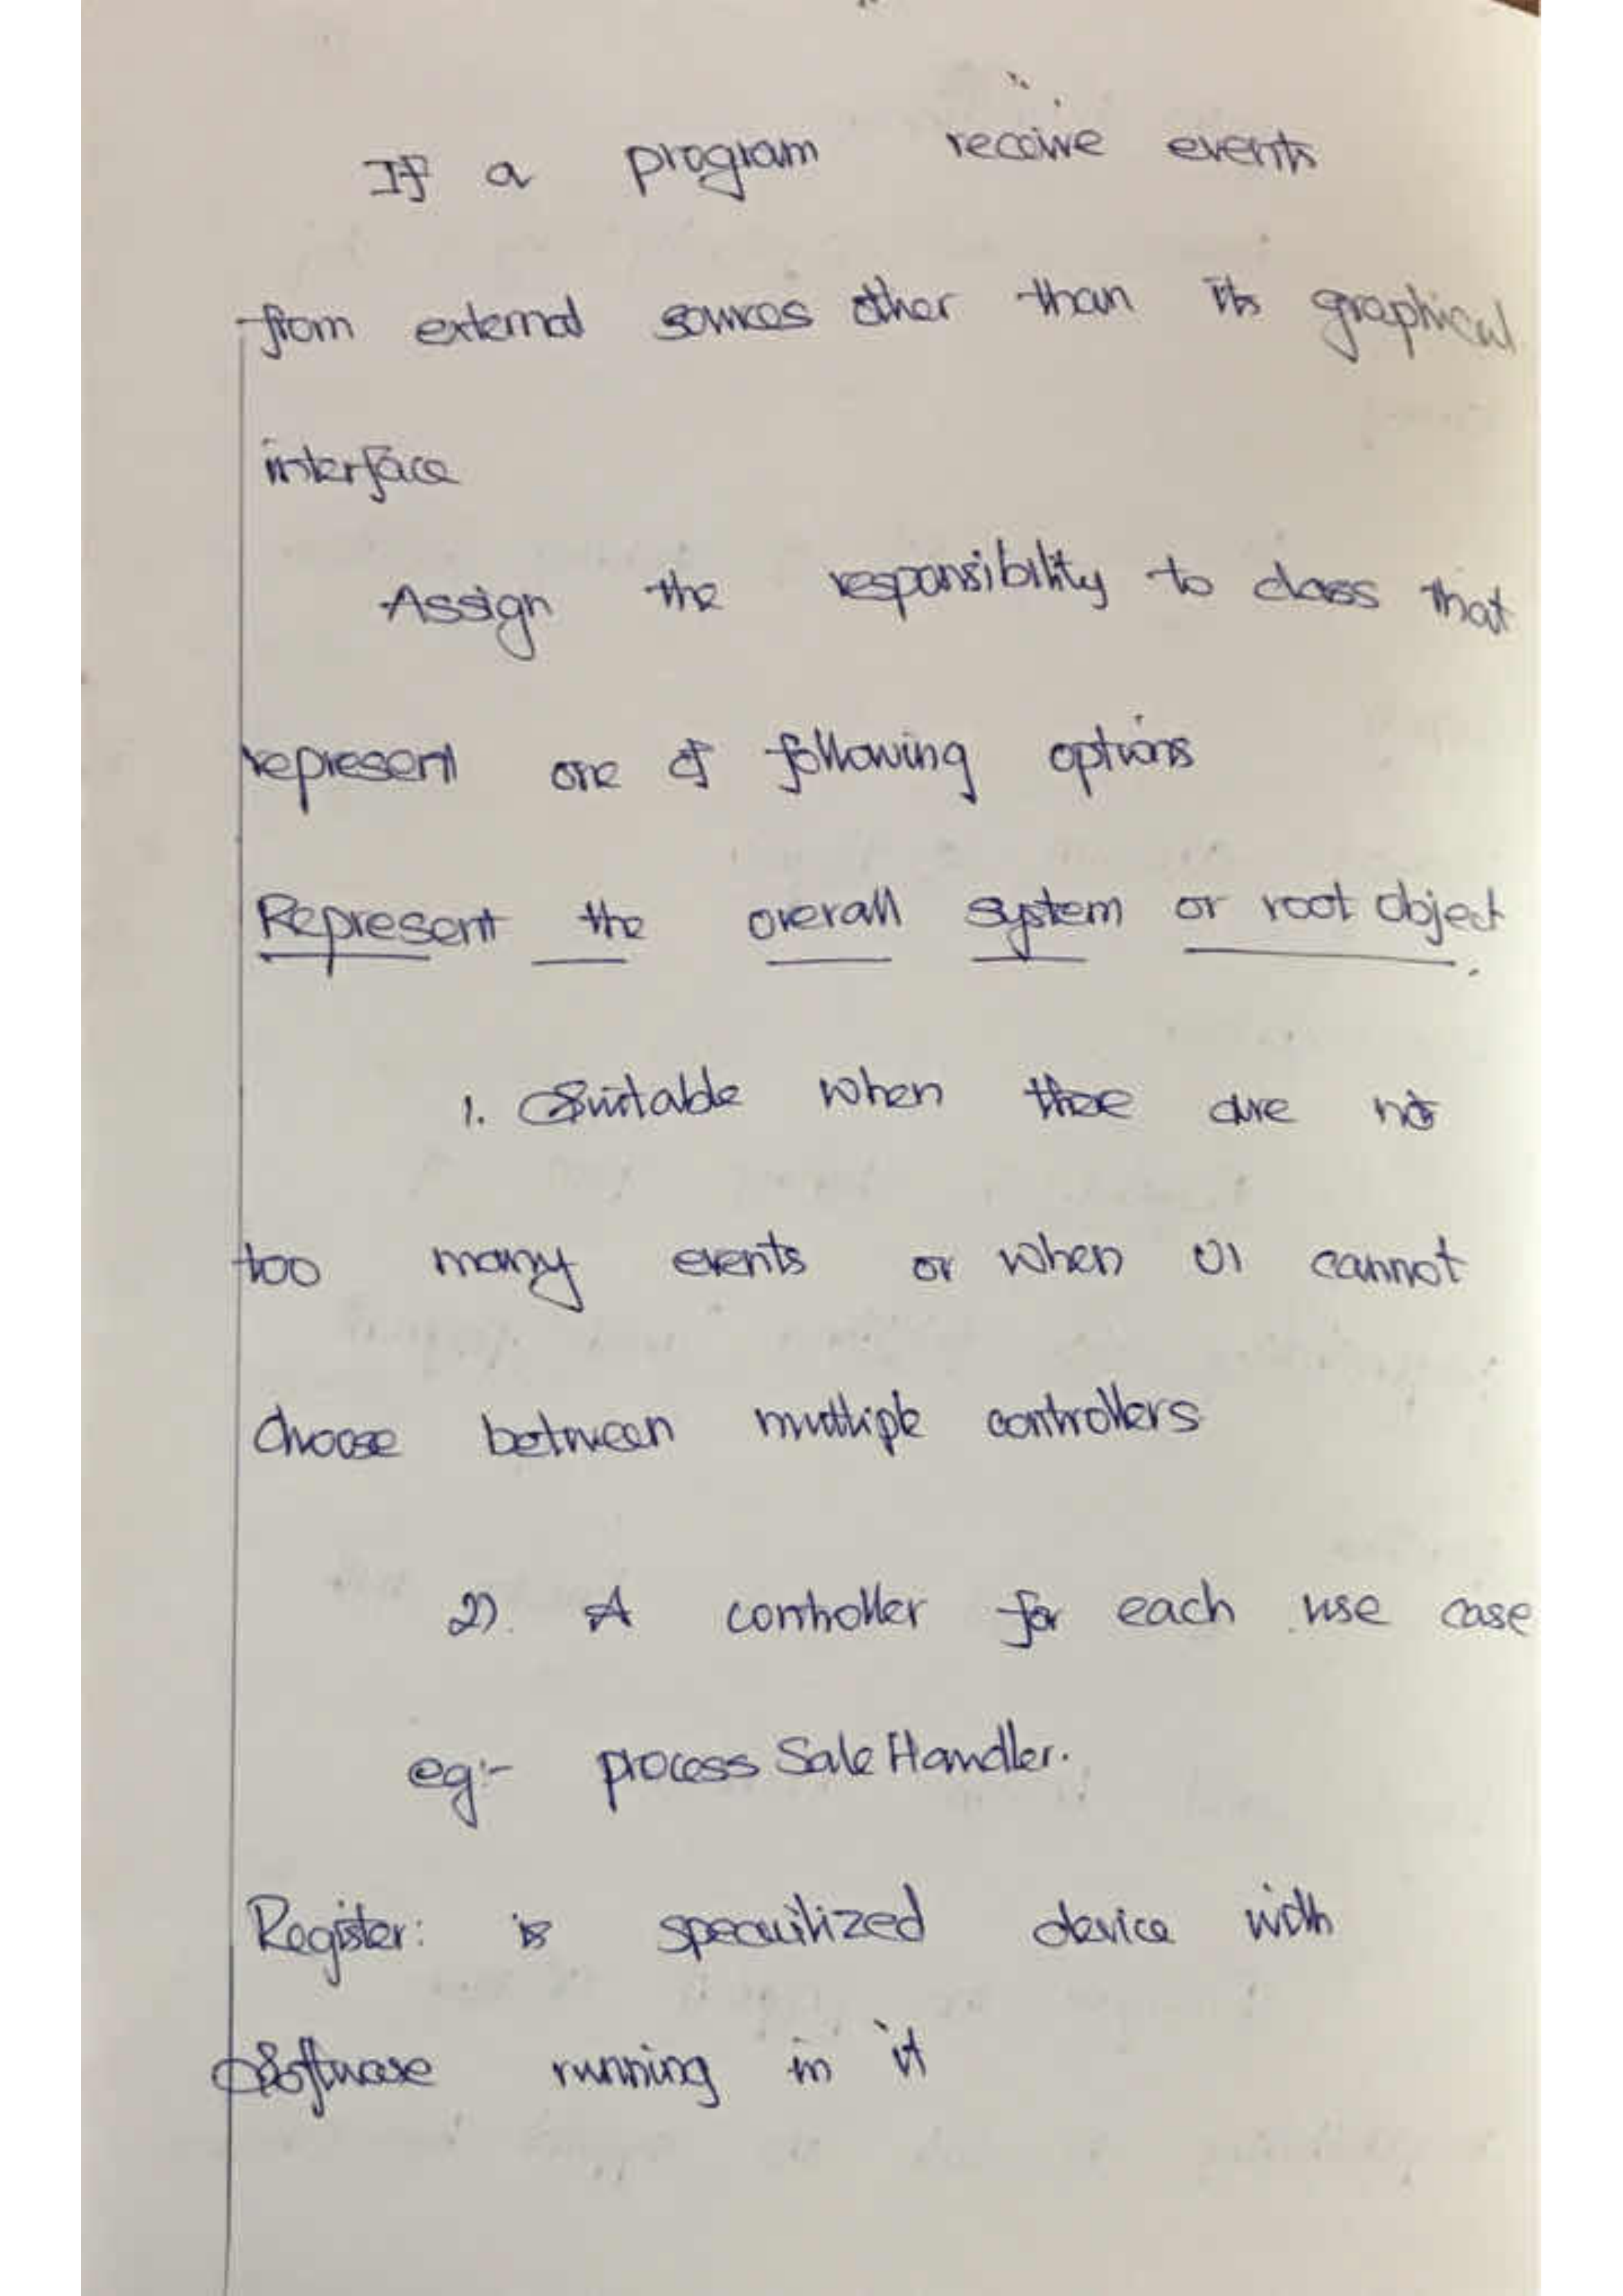 If a program receive events
from external sources other than its graphical
interface
Assign the responsibility to class that
represent one of following options
Represent the overall system or root object.
1. Suitable when there are not
too many events or when UI cannot
choose between multiple controllers
2). A controller for each use case
eg:- process Sale Handler.
Register: is specailized device with
Software running in it